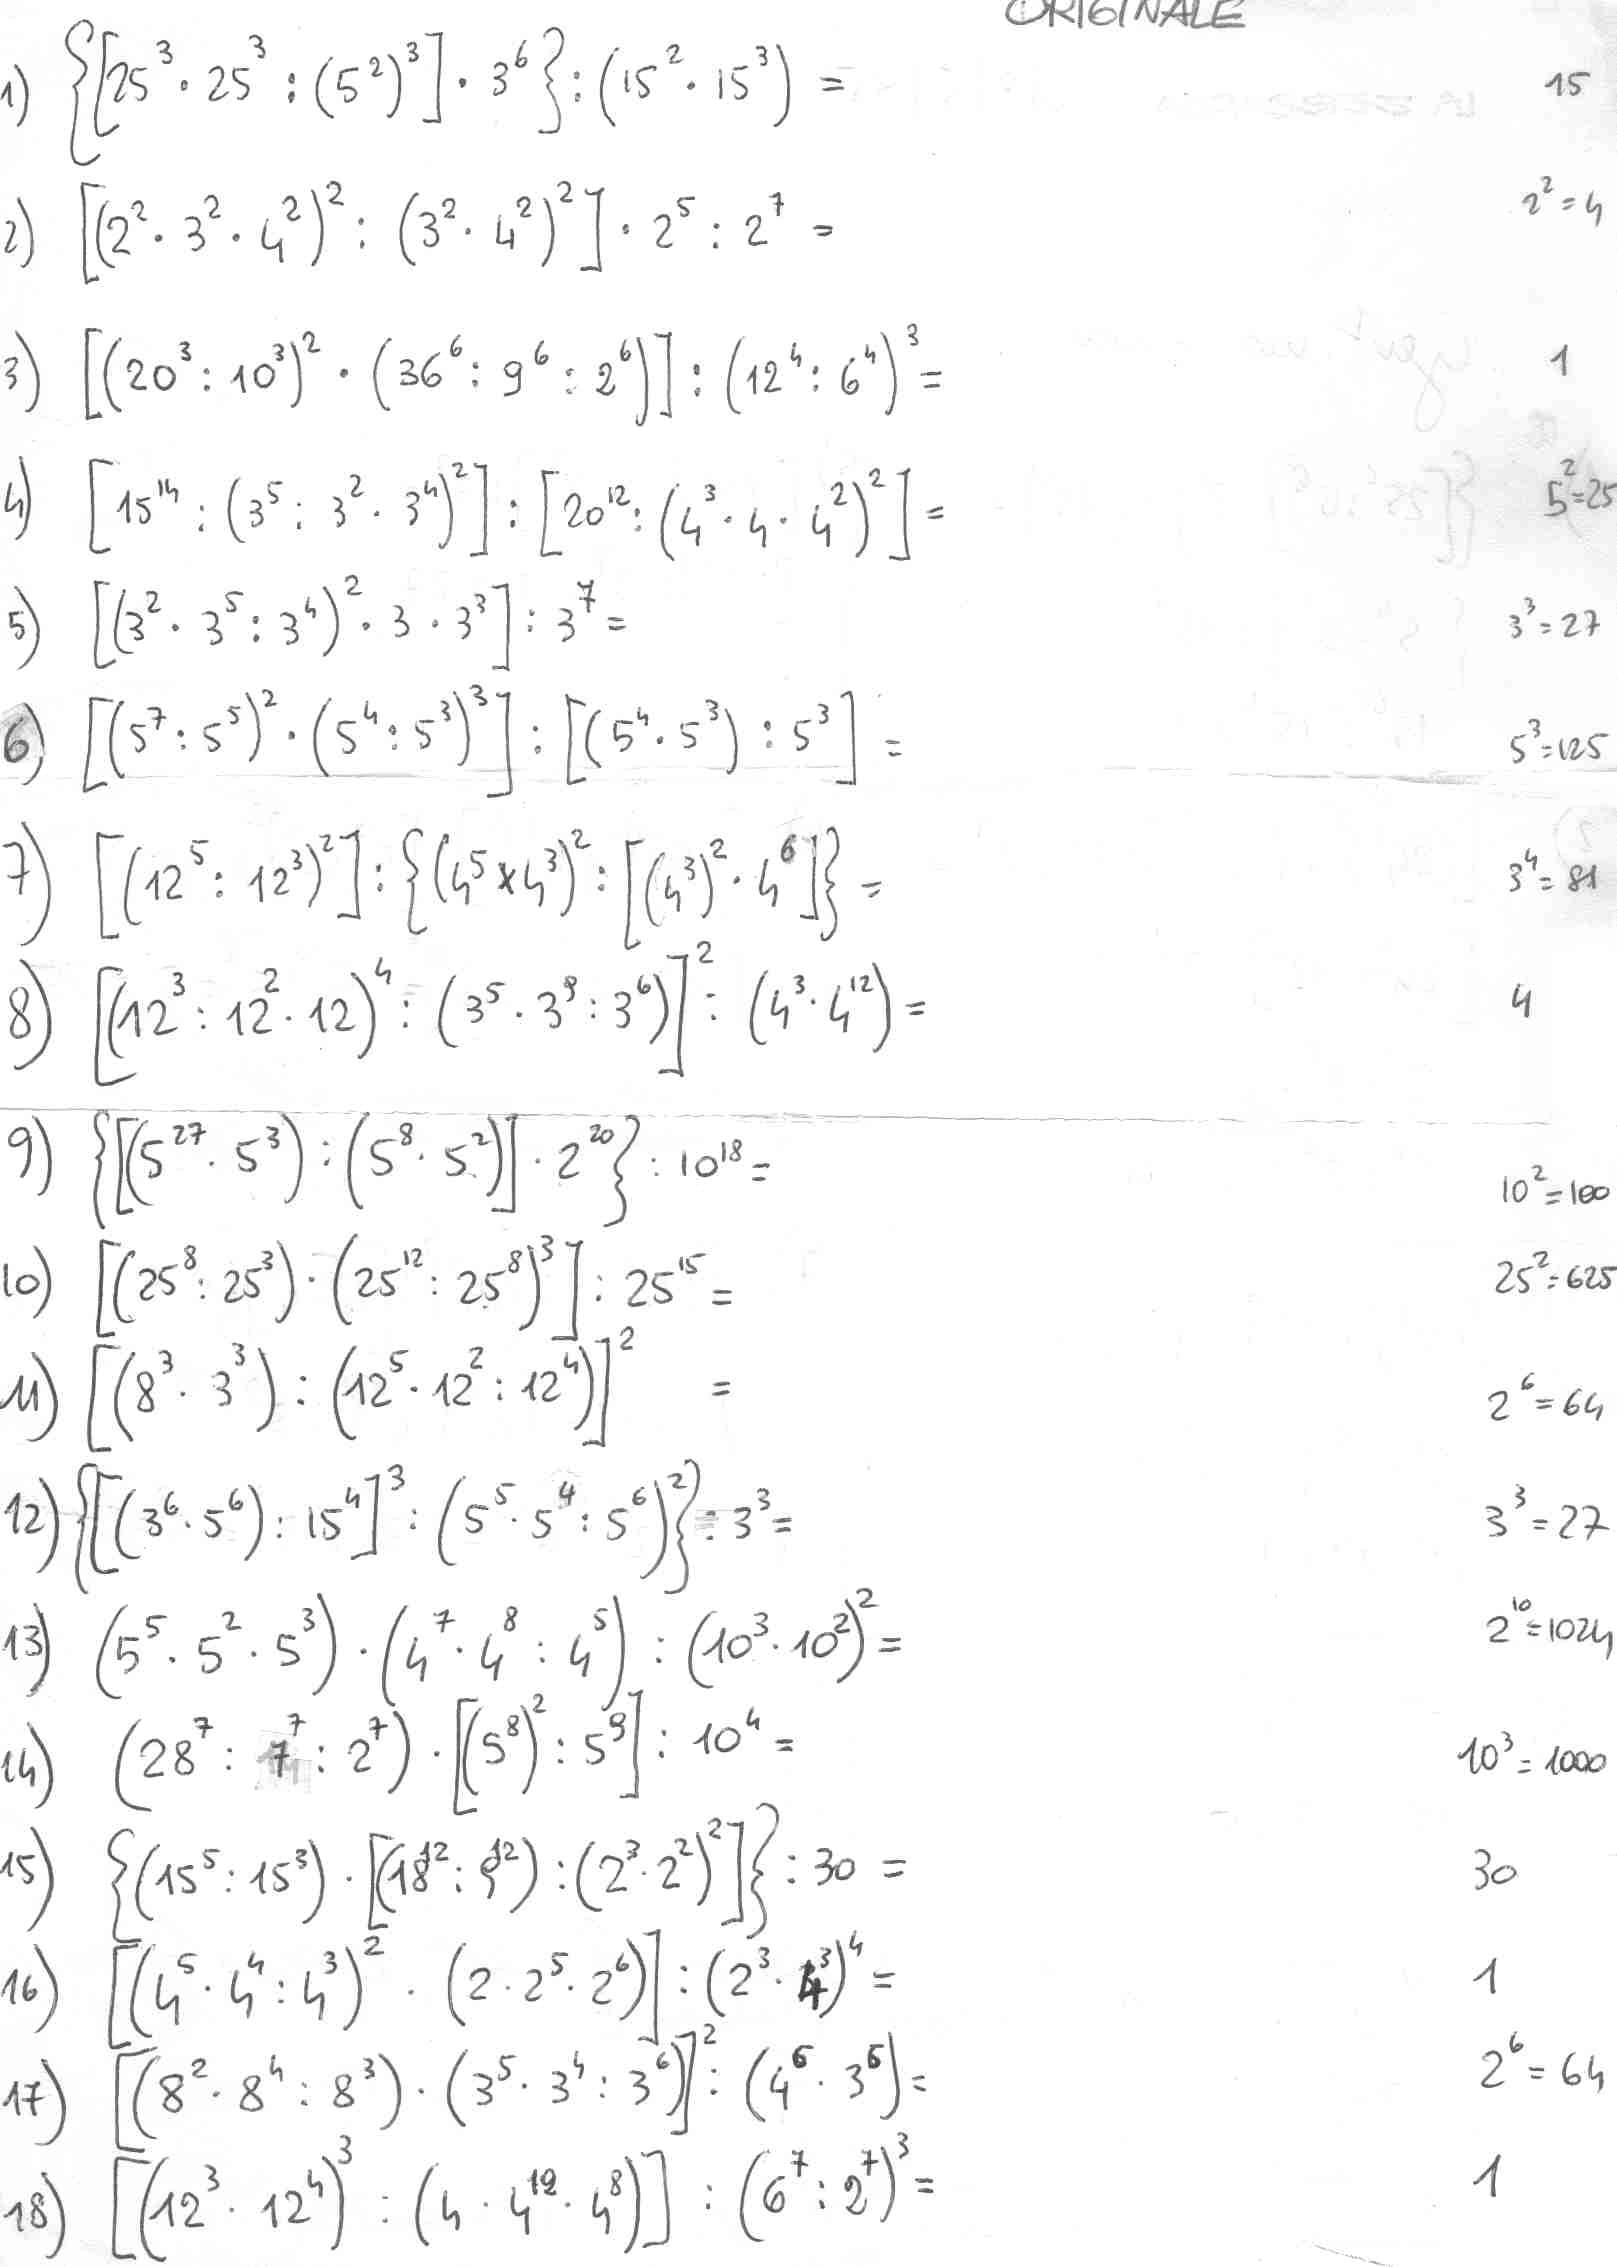 ORIGINALE
1) {[25³ · 25³ : (5²)³] · 3⁶} : (15² · 15³) = 15
2) [(2² · 3² · 4²)² : (3² · 4²)²] · 2⁵ : 2⁷ = 2² = 4
3) [(20³ : 10³)² · (36⁶ : 9⁶ : 2⁶)] : (12⁴ : 6⁴)³ = 1
4) [15¹⁴ : (3⁵ : 3² · 3⁴)²] : [20¹² : (4³ · 4 · 4²)²] = 5² = 25
5) [(3² · 3⁵ : 3⁴)² · 3 · 3³] : 3⁷ = 3³ = 27
6) [(5⁷ : 5⁵)² · (5⁴ : 5³)³] : [(5⁴ · 5³) : 5³] = 5³ = 125
7) [(12⁵ : 12³)²] : {(4⁵ x 4³)² : [(4³)² · 4⁶]} = 3⁴ = 81
8) [(12³ : 12² · 12)⁴ : (3⁵ · 3⁹ : 3⁶)]² : (4³ · 4¹²) = 4
9) {[(5²⁷ · 5³) : (5⁸ · 5²)] · 2²⁰} : 10¹⁸ = 10² = 100
10) [(25⁸ : 25³) · (25¹² : 25⁸)³] : 25¹⁵ = 25² = 625
11) [(8³ · 3³) : (12⁵ · 12² : 12⁴)]² = 2⁶ = 64
12) {[(3⁶ · 5⁶) : 15⁴]³ : (5⁵ · 5⁴ : 5⁶)²} : 3³ = 3³ = 27
13) (5⁵ · 5² · 5³) · (4⁷ · 4⁸ : 4⁵) : (10³ · 10²)² = 2¹⁰ = 1024
14) (28⁷ : 7⁷ : 2⁷) · [(5⁸)² : 5⁹] : 10⁴ = 10³ = 1000
15) {(15⁵ : 15³) · [(18¹² : 9¹²) : (2³ · 2²)²]} : 30 = 30
16) [(4⁵ · 4⁴ : 4³)² · (2 · 2⁵ · 2⁶)] : (2³ · 4³)⁴ = 1
17) [(8² · 8⁴ : 8³) · (3⁵ · 3⁴ : 3⁶)]² : (4⁶ · 3⁶) = 2⁶ = 64
18) [(12³ · 12⁴)³ : (4 · 4¹² · 4⁸)] : (6⁷ : 2⁷)³ = 1